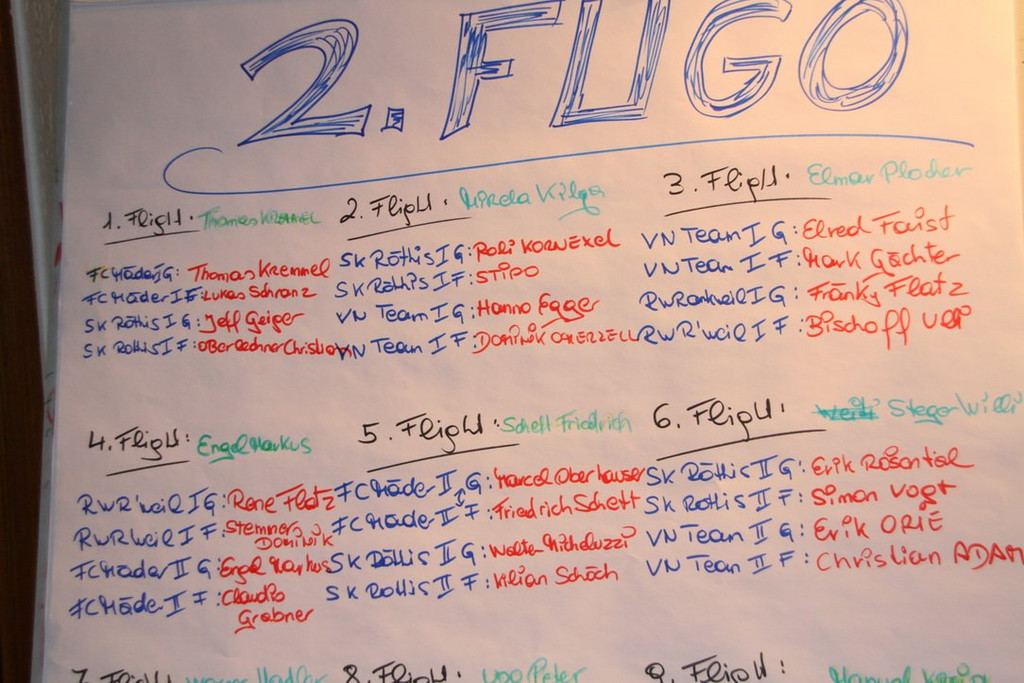 2. FUGO
1. Flight. Thomas Kremmel
FC Mäder I G: Thomas Kremmel
FC Mäder I F: Lukas Schranz
SK Röthis I G: Jeff Geiger
SK Röthis I F: Oberlechner Christian
2. Flight. Kilga
SK Röthis I G: Poli KORNEXEL
SK Röthis I F: STIPO
VN Team I G: Hanno Egger
VN Team I F: DOMINIK
3. Flight. Elmar Plocher
VN Team I G: Elred Faist
VN Team I F: Mark Gächter
RW Rankweil I G: Franky Flatz
RW R'weil I F: Bischoff Uli
4. Flight: Engel Markus
RW R'weil I G: Rene Flatz
RW R'weil I F: Stemmer
DOMINIK
FC Mäder II G: Engel Markus
FC Mäder II F: Claudio
Grabner
5. Flight: Schett Friedrich
FC Mäder II G: Marcel Oberhauser
FC Mäder II F: Friedrich Schett
SK Röthis II G: Walter Micheluzzi
SK Röthis II F: Kilian Schöch
6. Flight: Steger Willi
SK Röthis II G: Erik Rosentiel
SK Röthis II F: Simon Vogt
VN Team II G: Erik ORIÉ
VN Team II F: Christian ADAM
7. Flight
8. Flight: Peter
9. Flight: Manuel